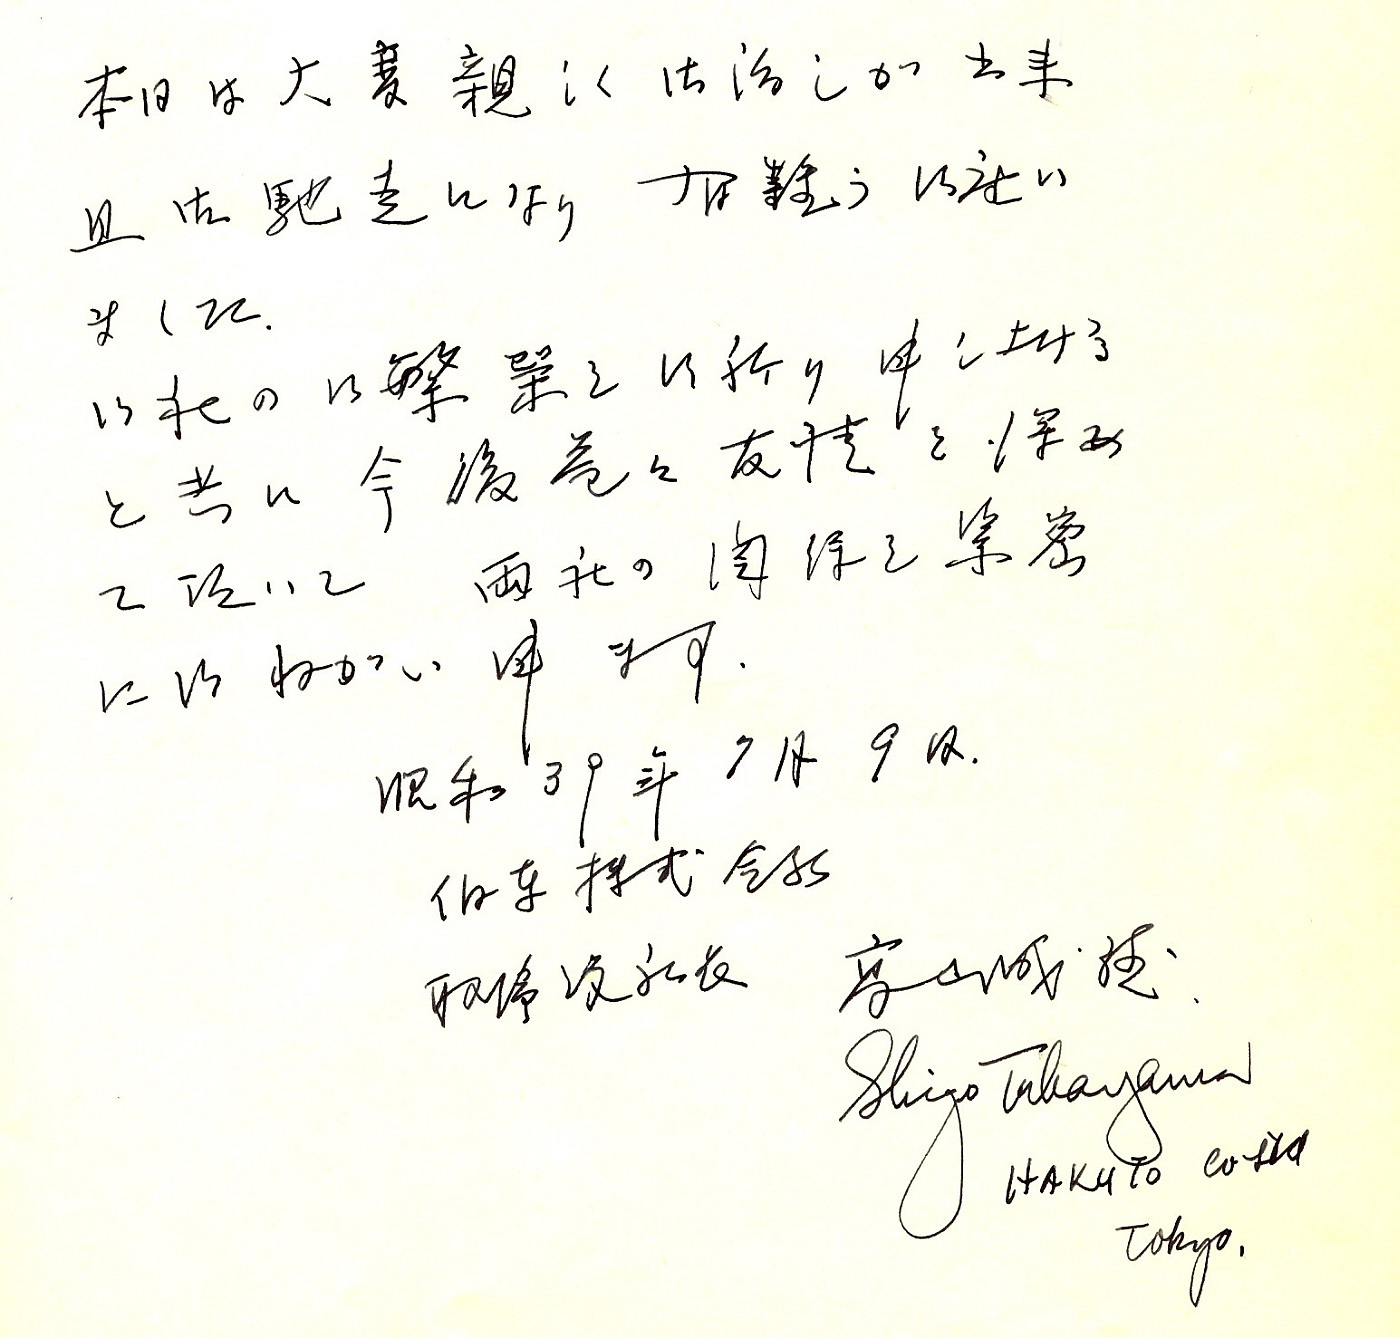 本日は大変親しくお話しが出来
且御馳走になり有難う御座い
ました.
御社の御繁栄を御祈り申し上げる
と共に今後益々友情を深め
て頂いて両社の関係を緊密
に御ねがい申ます.
昭和39年7月9日.
伯東株式会社
取締役社長 高山成雄.
Shigeo Takayama
HAKUTO Co Ltd
Tokyo.